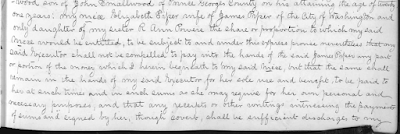 son of John Smallwood of Prince Georges County on his attaining the age of twenty
one years: My niece Elizabeth Piper wife of James Piper of the City of Washington and
only daughter of my sister R. Ann Powers the share or proportion to which my said
niece would be entitled, to be subject to and under this express proviso nevertheless that my
said Executor shall not be compelled to pay into the hands of the said James Piper any part
or portion of the money which I herein bequeath to my said niece, but that the same shall
remain in the hands of my said Executor for her sole use and benefit. to be paid to
her at such times and in such sums as she may require for her own personal and
necessary purposes, and that any receipts or other writings witnessing the payments
of sums and signed by her, though covert, shall be sufficient discharges to my